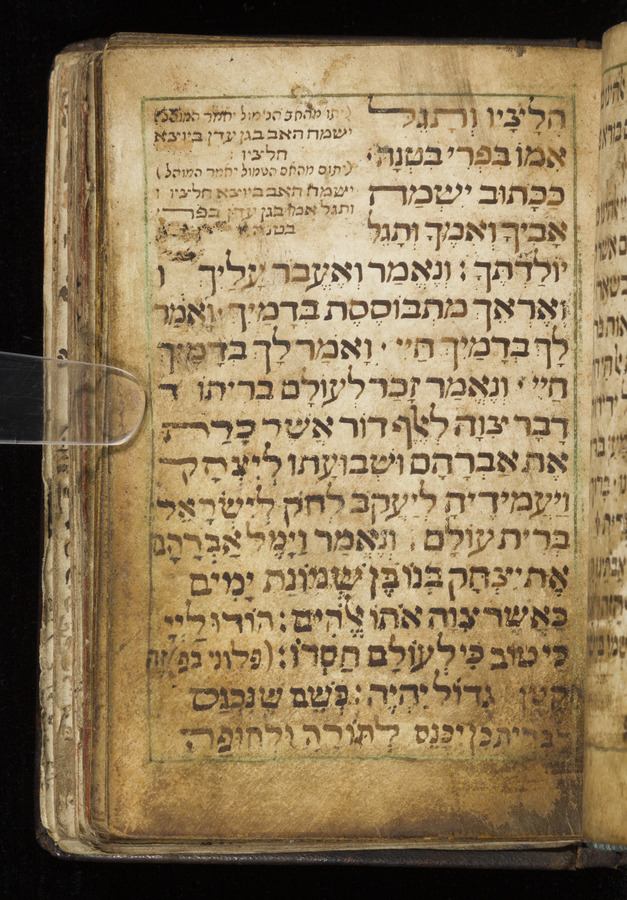 חֲלִיצָיו וְתָגֵל
אִמּוֹ בִּפְרִי בִטְנָהּ ׃
כַּכָּתוּב יִשְׂמַח
אָבִיךָ וְאִמֶּךָ וְתָגֵל
יוֹלַדְתֶּךָ : וְנֶאֱמַר וָאֶעֱבֹר עָלַיִךְ ו
וָאֶרְאֵךְ מִתְבּוֹסֶסֶת בְּדָמָיִךְ · וָאֹמַר
לָךְ בְּדָמַיִךְ חֲיִי · וָאֹמַר לָךְ בְּדָמַיִךְ
חֲיִי · וְנֶאֱמַר זָכַר לְעוֹלָם בְּרִיתוֹ ד
דָּבָר צִוָּה לְאֶלֶף דּוֹר אֲשֶׁר כָּרַת
אֶת אַבְרָהָם וּשְׁבוּעָתוֹ לְיִצְחָק
וַיַּעֲמִידֶיהָ לְיַעֲקֹב לְחֹק לְיִשְׂרָאֵל
בְּרִית עוֹלָם . וְנֶאֱמַר וַיָּמָל אַבְרָהָם
אֶת יִצְחָק בְּנוֹ בֶּן שְׁמוֹנַת יָמִים
כַּאֲשֶׁר צִוָּה אֹתוֹ אֱלֹהִים : הוֹדוּ לַייָ
כִּי טוֹב כִּי לְעוֹלָם חַסְדּוֹ : (פלוני בפ) זה
קטן גָּדוֹל יִהְיֶה : כְּשֵׁם שֶׁנִּכְנַס
לַבְּרִית כֵּן יִכָּנֵס לְתוֹרָה וּלְחוּפָּה
יתו מהאב הנימול יאמר המוהל)
ישמח האב בגן עדן ביוצא
חליציו :
(יתום מהאם הנימול יאמר המוהל)
ישמח האב ביוצא חליציו ו
ותגל אמו בגן עדן בפרי
בטנה